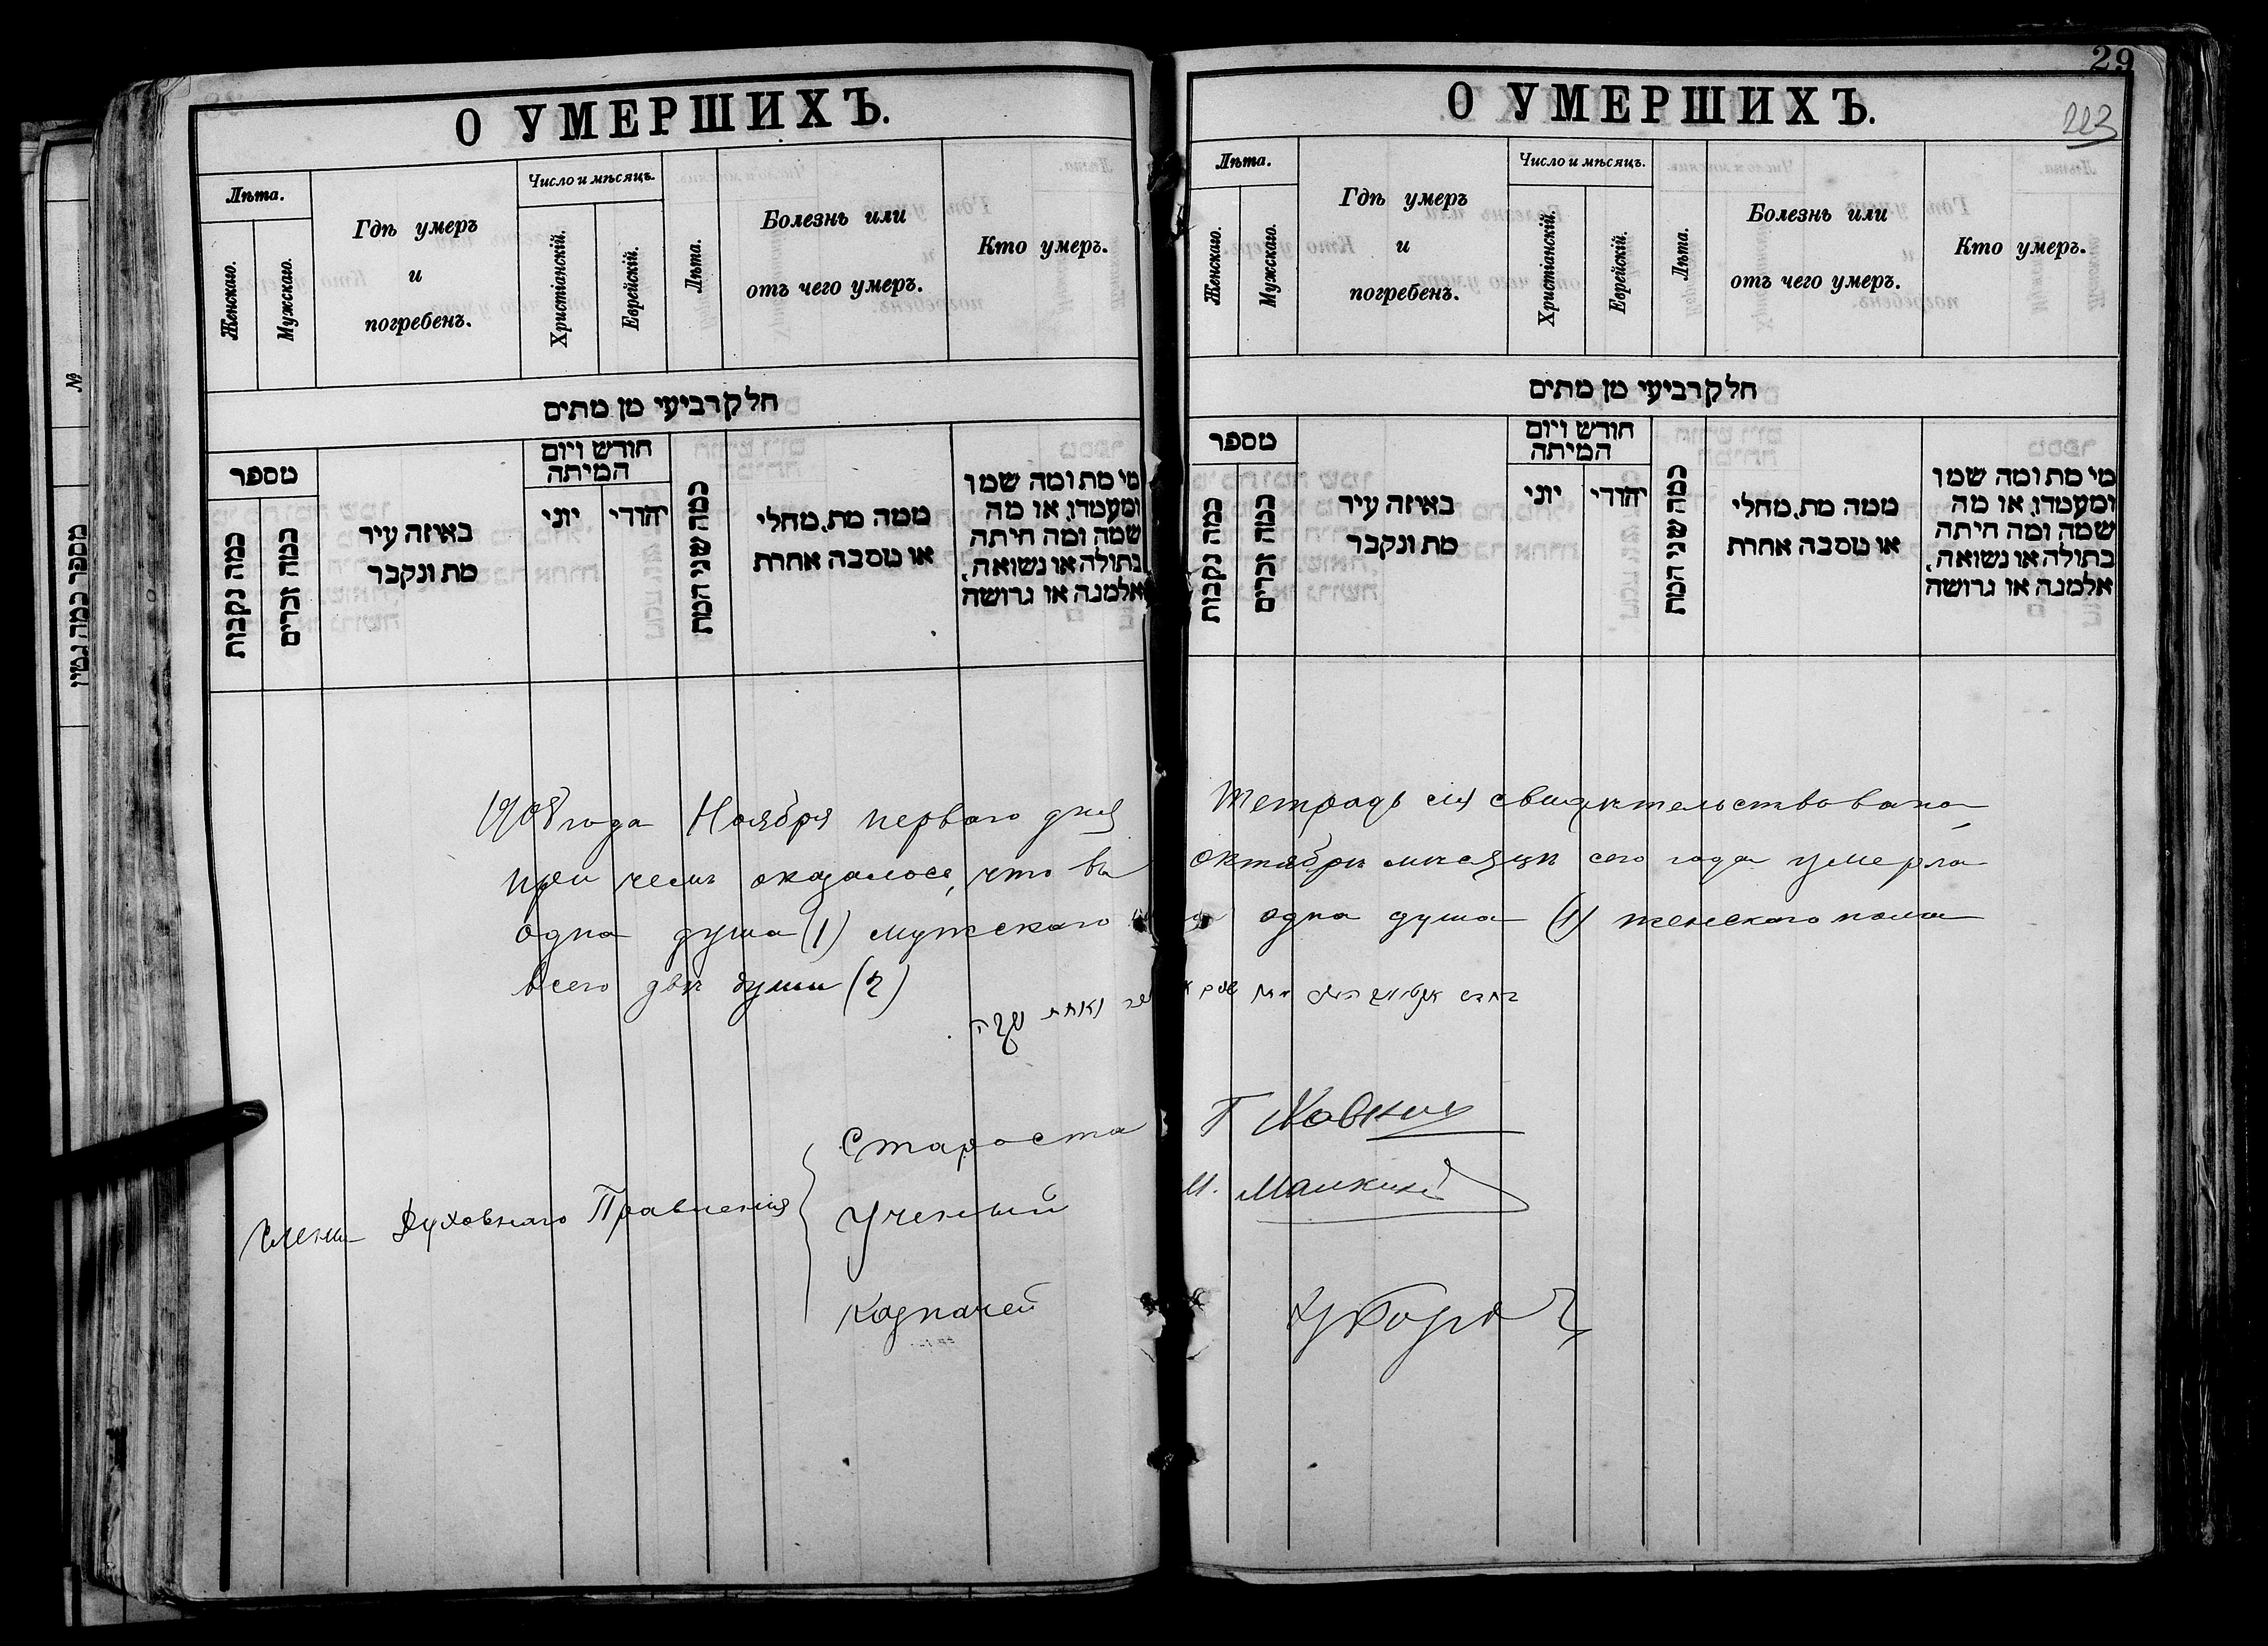 29
223
О УМЕРШИХЪ.
Лѣта.
Женскаго.
Мужскаго.
Гдѣ умеръ
и
погребенъ.
Число и мѣсяцъ.
Христіанскій.
Еврейскій.
Лѣта.
Болезнь или
отъ чего умеръ.
Кто умеръ.
חלק רביעי מן מתים
מספר
כמה נקבות
כמה זכרים
באיזה עיר
מת ונקבר
חודש ויום
המיתה
יוני
יהודי
כמה שני המת
ממה מת, מחלי
או מסבה אחרת
מי מת ומה שמו
ומעמדו, או מה
שמה ומה היתה
בתולה או נשואה,
אלמנה או גרושה
О УМЕРШИХЪ.
Лѣта.
Женскаго.
Мужскаго.
Гдѣ умеръ
и
погребенъ.
Число и мѣсяцъ.
Христіанскій.
Еврейскій.
Лѣта.
Болезнь или
отъ чего умеръ.
Кто умеръ.
חלק רביעי מן מתים
מספר
כמה נקבות
כמה זכרים
באיזה עיר
מת ונקבר
חודש ויום
המיתה
יוני
יהודי
כמה שני המת
ממה מת, מחלי
או מסבה אחרת
מי מת ומה שמו
ומעמדו, או מה
שמה ומה היתה
בתולה או נשואה,
אלמנה או גרושה
1908 года Ноября перваго дня Тетрадь сія свидѣтельствована,
при чемъ оказалось, что въ октябрѣ мѣсяцѣ сего года умерла
одна душа (1) мужскаго одна душа (1) женскаго пола
всего двѣ души (2)
ואחת נקבה
Члены Духовнаго Правленія
Староста
Ученый
Казначей
№
מספר כמה גטין